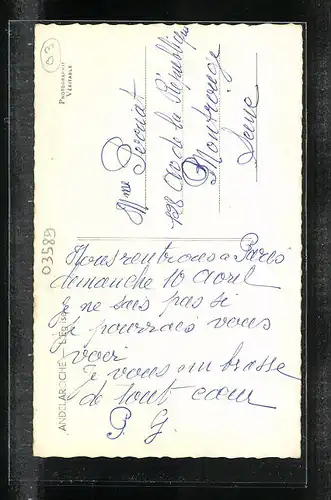 03
PHOTOGRAPHIE
VÉRITABLE
Mme Pernat
128 Av de la République
Montrouge
Seine
03589
ANDELAROCHE - L'ÉGLISE
Nous rentrons a Paris
dimanche 10 Avril
Je ne sais pas si
je pourrais vous
voir
Je vous embrasse
de tout cœur
P. G.